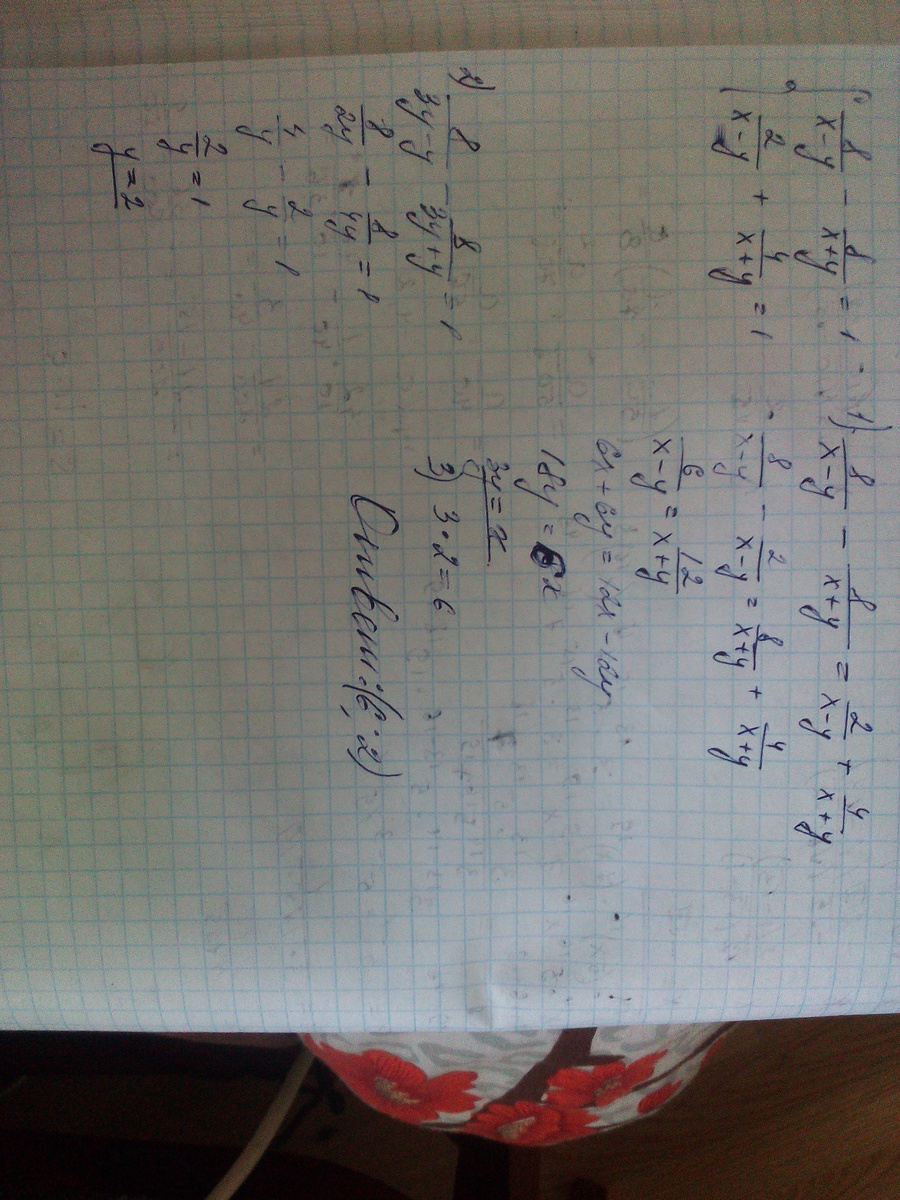 8/(x-y) - 8/(x+y) = 1
2/(x-y) + 4/(x+y) = 1
1) 8/(x-y) - 8/(x+y) = 2/(x-y) + 4/(x+y)
8/(x-y) - 2/(x-y) = 8/(x+y) + 4/(x+y)
6/(x-y) = 12/(x+y)
6x+6y = 12x-12y
18y = 6x
3y = x
2) 8/(3y-y) - 8/(3y+y) = 1
8/2y - 8/4y = 1
4/y - 2/y = 1
2/y = 1
y = 2
3) 3·2=6
Ответ: (6; 2)